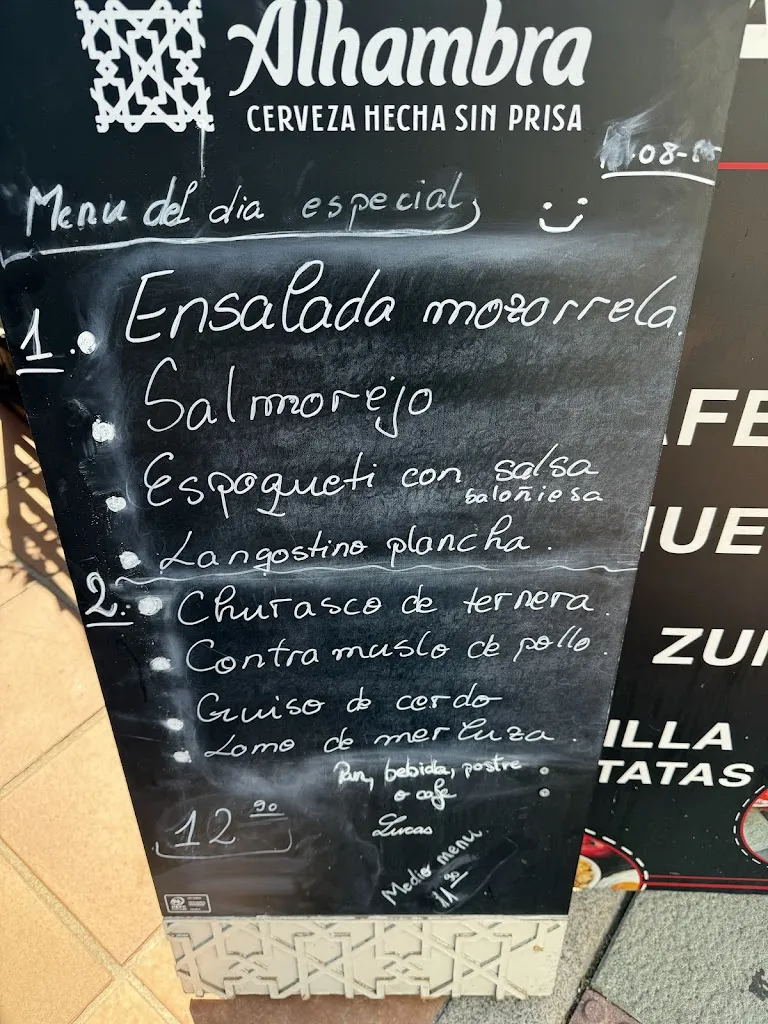 Alhambra
CERVEZA HECHA SIN PRISA
08-
Menu del dia especial
1. Ensalada mozorrela.
Salmorejo
Espogueti con salsa
baloñiesa
Langostino plancha.
2. Churasco de ternera.
Contra muslo de pollo.
Guiso de cerdo
Lomo de merluza.
Pan, bebida, postre
o cafe
12 90
Lucas
Medio menu
11 90
AFE
UE
ZU
ILLA
TATAS